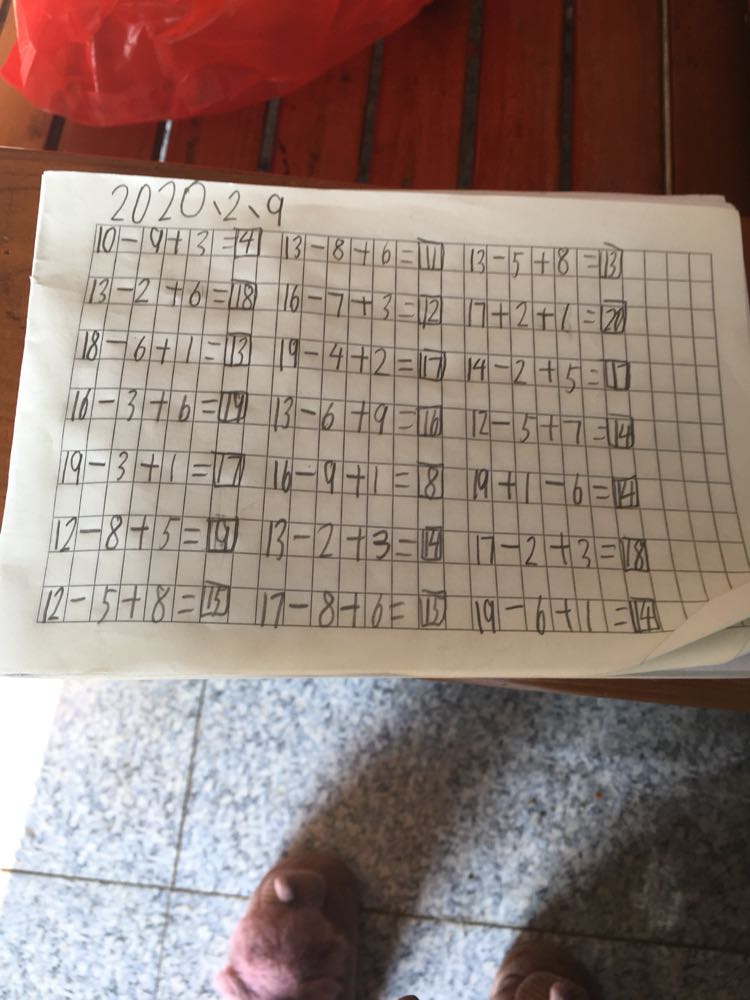 2020、2、9
10-9+3=4 13-8+6=11 13-5+8=13
13-2+6=18 16-7+3=12 17+2+1=20
18-6+1=13 19-4+2=17 14-2+5=17
16-3+6=19 13-6+9=16 12-5+7=14
19-3+1=17 16-9+1=8 19+1-6=14
12-8+5=19 13-2+3=14 17-2+3=18
12-5+8=15 17-8+6=15 19-6+1=14